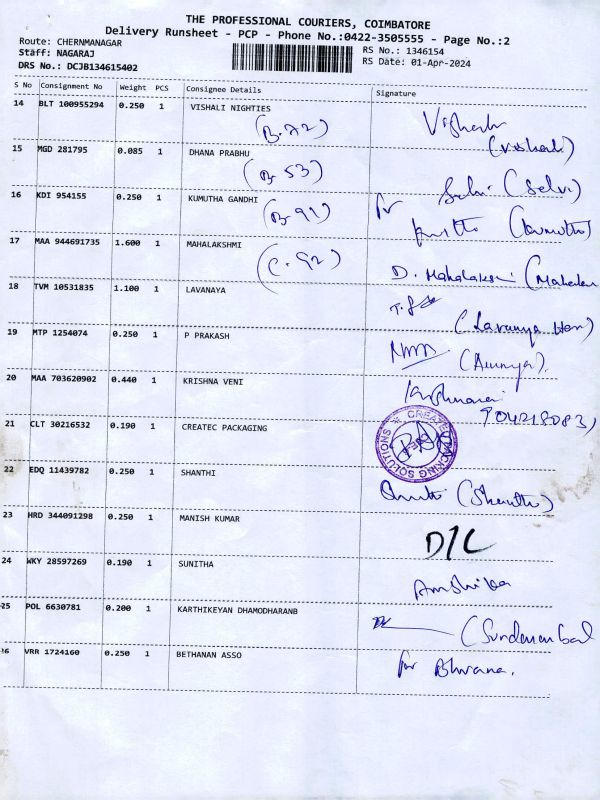 THE PROFESSIONAL COURIERS, COIMBATORE
Delivery Runsheet - PCP - Phone No.:0422-3505555 - Page No.:2
Route: CHERNMANAGAR
Staff: NAGARAJ
DRS No.: DCJB134615402
RS No.: 1346154
RS Date: 01-Apr-2024
S No Consignment No Weight PCS Consignee Details Signature
14 BLT 100955294 0.250 1 VISHALI NIGHTIES
(B-72) (Vishali)
15 MGD 281795 0.085 1 DHANA PRABHU
(B-53) (Selvi)
16 KDI 954155 0.250 1 KUMUTHA GANDHI for
(B-91) (Kumutha)
17 MAA 944691735 1.600 1 MAHALAKSHMI
(C-92) D. Mahalakshmi
18 TVM 10531835 1.100 1 LAVANAYA
(Lavanya
19 MTP 1254074 0.250 1 P PRAKASH
20 MAA 703620902 0.440 1 KRISHNA VENI
21 CLT 30216532 0.190 1 CREATEC PACKAGING
CREATEC PACKING SOLUTIONS
22 EDQ 11439782 0.250 1 SHANTHI
(Shanthi)
23 HRD 344091298 0.250 1 MANISH KUMAR
D/L
24 WKY 28597269 0.190 1 SUNITHA
Anshika
25 POL 6630781 0.200 1 KARTHIKEYAN DHAMODHARANB
26 VRR 1724160 0.250 1 BETHANAN ASSO
for